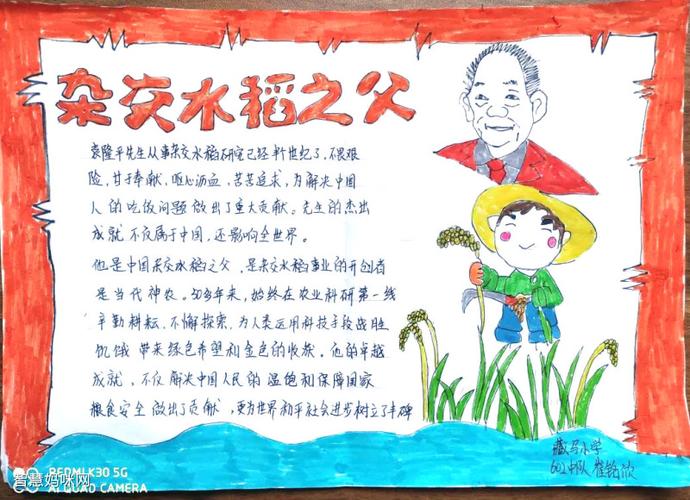 杂交水稻之父
袁隆平先生从事杂交水稻研究已经半世纪了，不畏艰
险，甘于奉献，呕心沥血，苦苦追求，为解决中国
人的吃饭问题做出了重大贡献。先生的杰出
成就不仅属于中国，还影响全世界。
他是中国杂交水稻之父，是杂交水稻事业的开创者
是当代神农。50多年来，始终在农业科研第一线
辛勤耕耘，不懈探索，为人类运用科技手段战胜
饥饿带来绿色希望和金色的收获。他的卓越
成就，不仅解决中国人民的温饱和保障国家
粮食安全做出了贡献，更为世界和平社会进步树立了丰碑
藏马小学
602中队 崔铭欣
REDMI K30 5G
AI QUAD CAMERA
智慧妈咪网